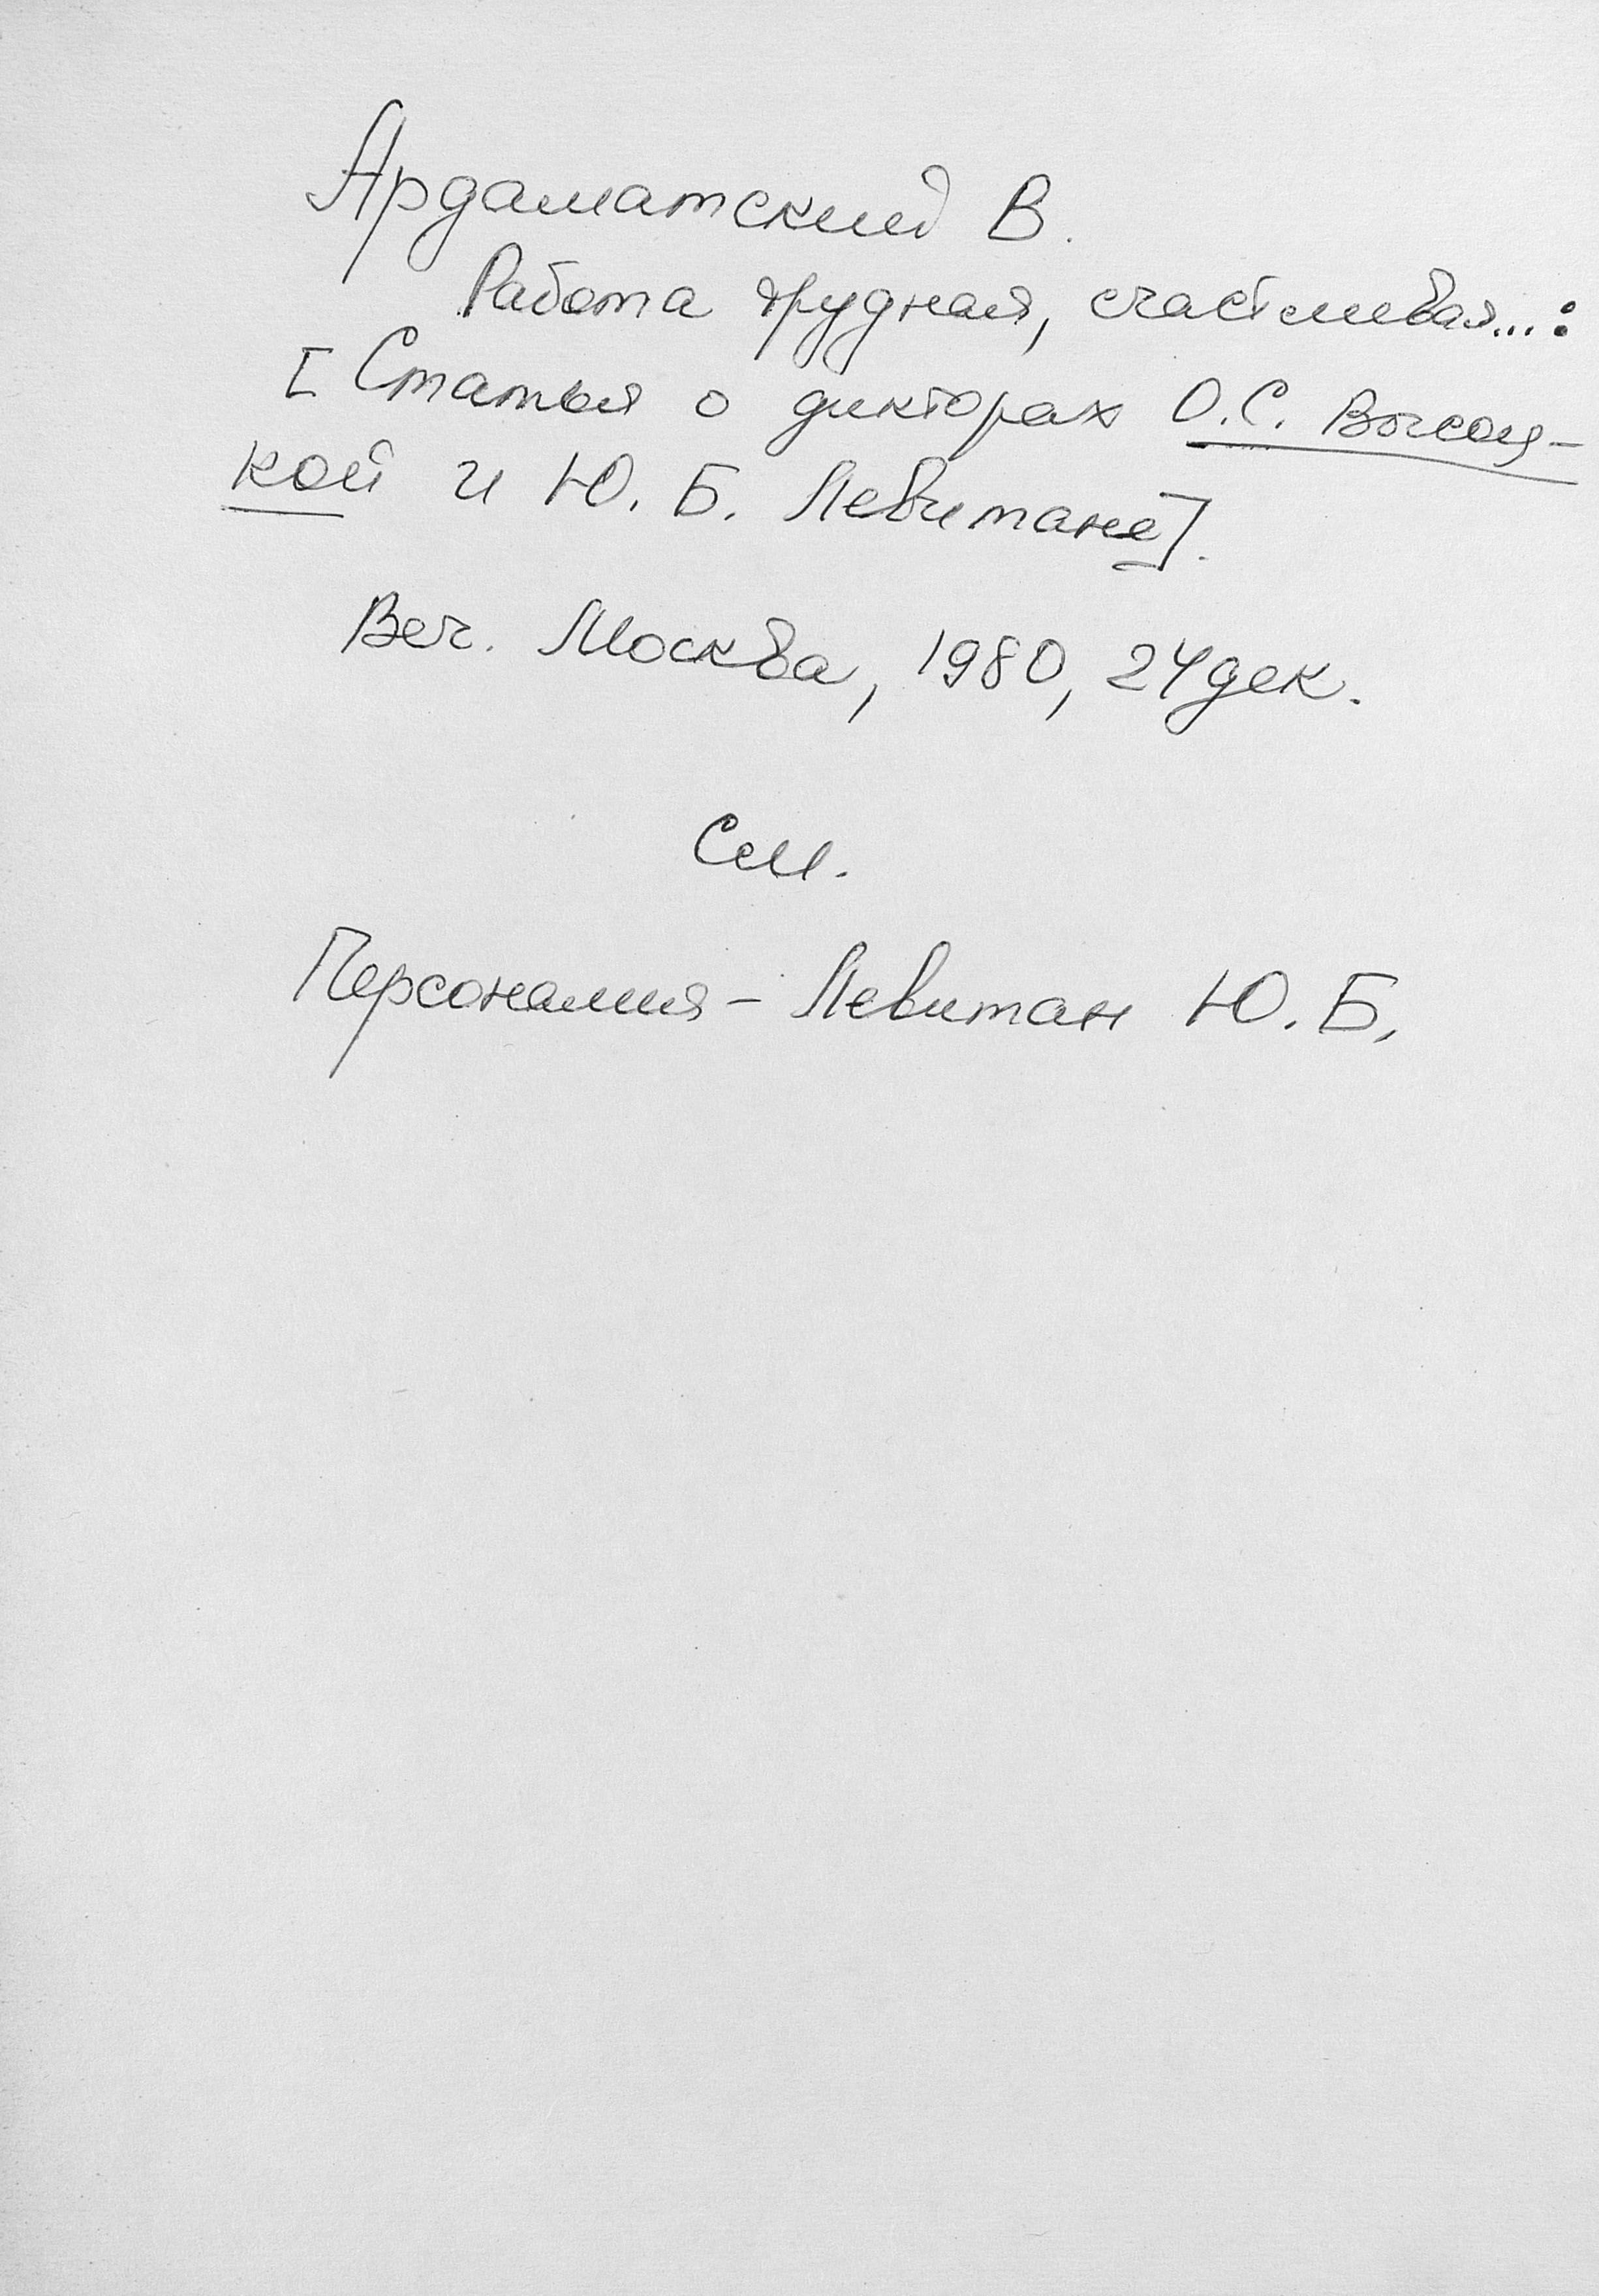 Ардаматский В.
Работа трудная, счастливая...:
[Статья о дикторах О.С. Высоц-
кой и Ю. Б. Левитане].
Веч. Москва, 1980, 24 дек.
См.
Персоналия - Левитан Ю. Б.